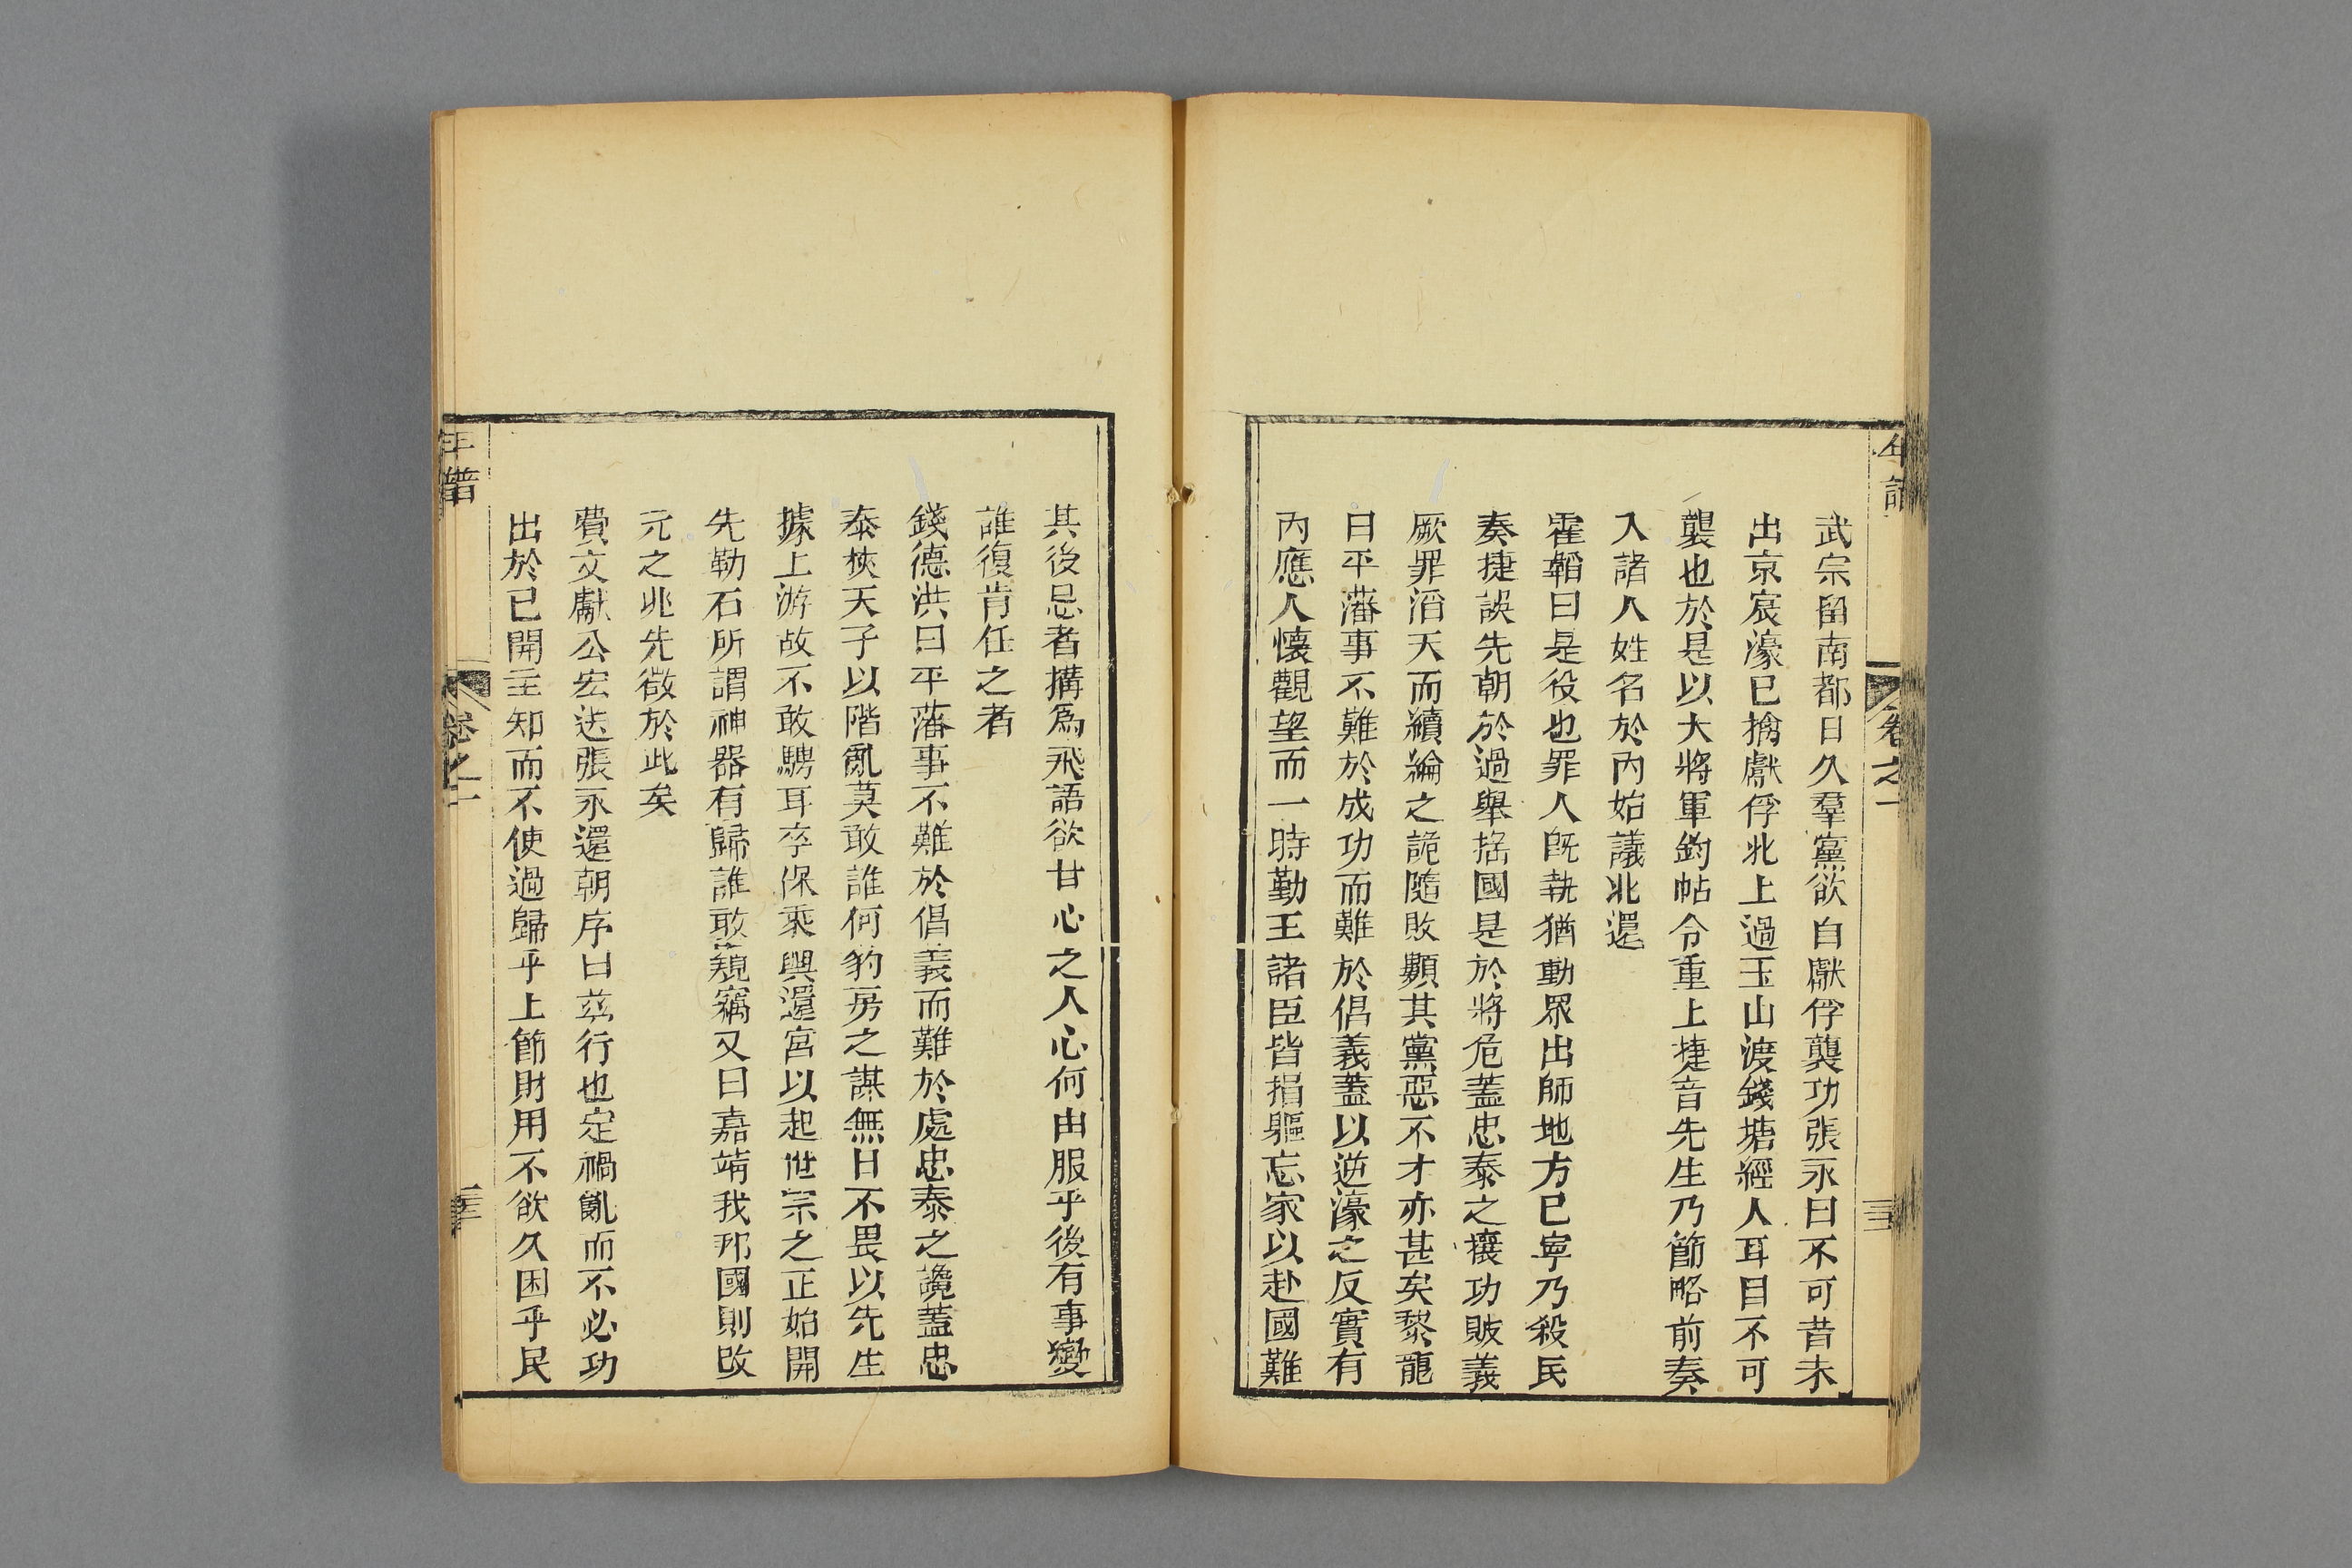 武宗留南都日久羣黨欲自獻俘襲功張永曰不可昔未
出京宸濠已擒獻俘北上過玉山渡錢塘經人耳目不可
襲也於是以大將軍鈞帖令重上捷音先生乃節略前奏
入諸人姓名於內始議北還
霍韜曰是役也罪人旣執猶動眾出師地方已寧乃殺民
奏捷誤先朝於過舉搖國是於將危蓋忠泰之攘功賊義
厥罪滔天而續綸之詭隨敗類其黨惡不才亦甚矣黎龍
曰平藩事不難於成功而難於倡義蓋以逆濠之反實有
內應人懷觀望而一時勤王諸臣皆捐軀忘家以赴國難
其後忌者搆爲飛語欲甘心之人心何由服乎後有事變
誰復肯任之者
錢德洪曰平藩事不難於倡義而難於處忠泰之讒蓋忠
泰挾天子以階亂莫敢誰何豹房之謀無日不畏以先生
據上游故不敢騁耳卒保乘輿還宮以起世宗之正始開
先勒石所謂神器有歸誰敢窺竊又曰嘉靖我邦國則改
元之兆先徵於此矣
費文獻公宏送張永還朝序曰茲行也定禍亂而不必功
出於己開主知而不使過歸乎上節財用不欲久困乎民
年譜
卷之二